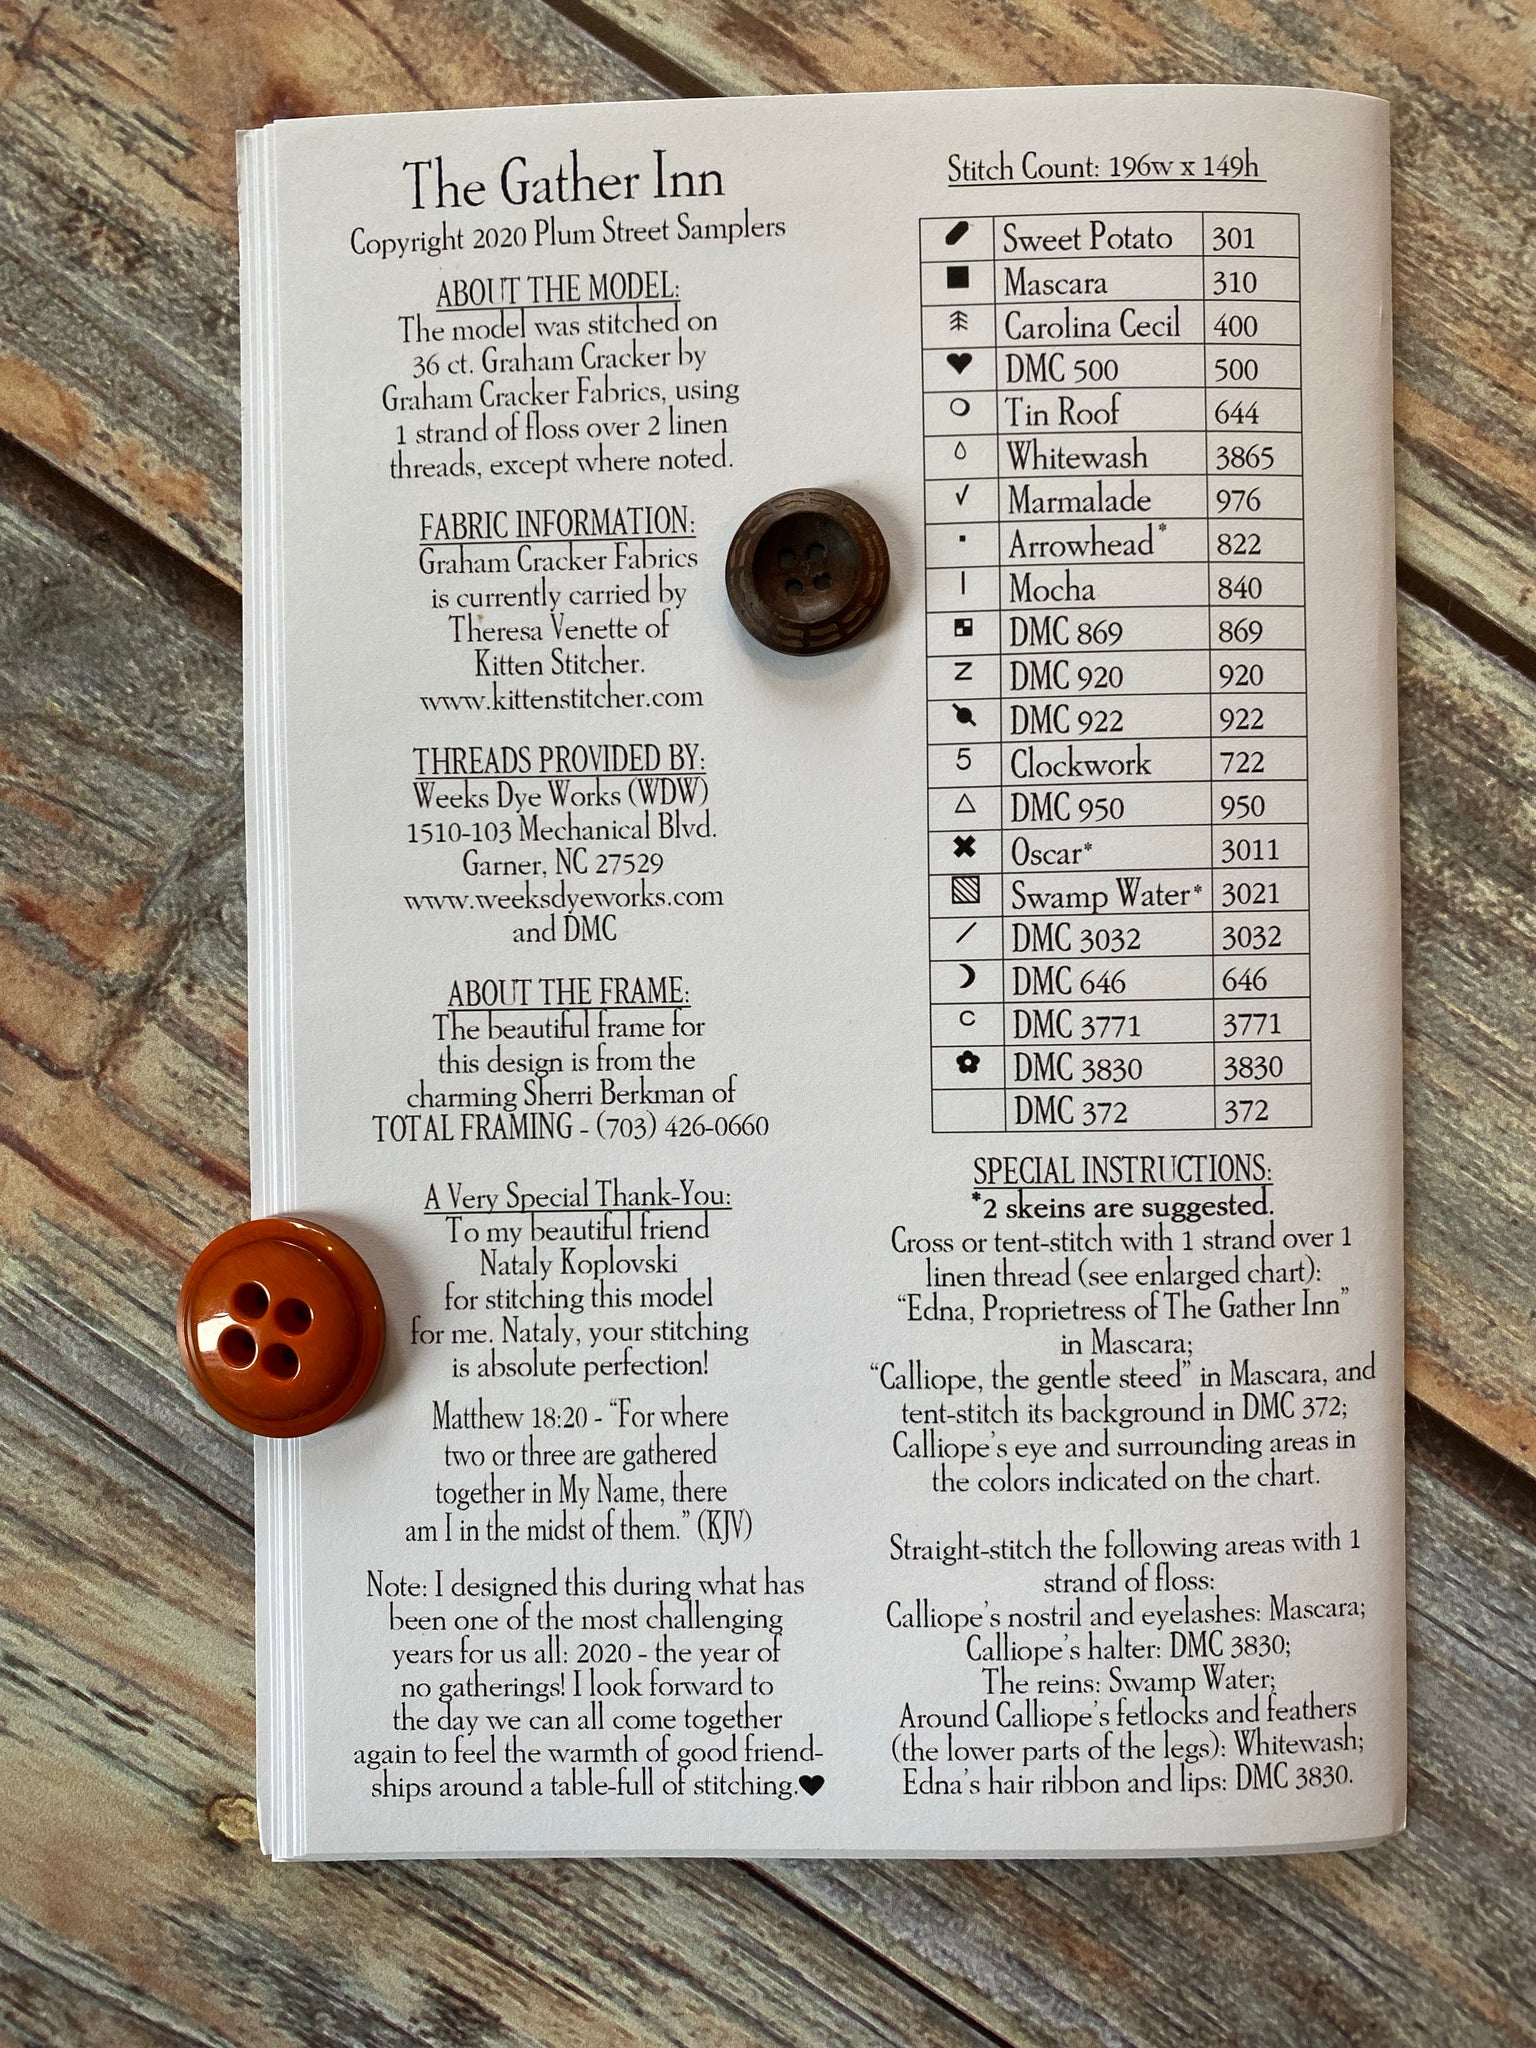 The Gather Inn
Copyright 2020 Plum Street Samplers
ABOUT THE MODEL:
The model was stitched on
36 ct. Graham Cracker by
Graham Cracker Fabrics, using
1 strand of floss over 2 linen
threads, except where noted.
FABRIC INFORMATION:
Graham Cracker Fabrics
is currently carried by
Theresa Venette of
Kitten Stitcher.
www.kittenstitcher.com
THREADS PROVIDED BY:
Weeks Dye Works (WDW)
1510-103 Mechanical Blvd.
Garner, NC 27529
www.weeksdyeworks.com
and DMC
ABOUT THE FRAME:
The beautiful frame for
this design is from the
charming Sherri Berkman of
TOTAL FRAMING - (703) 426-0660
A Very Special Thank-You:
To my beautiful friend
Nataly Koplovski
for stitching this model
for me. Nataly, your stitching
is absolute perfection!
Matthew 18:20 - "For where
two or three are gathered
together in My Name, there
am I in the midst of them." (KJV)
Note: I designed this during what has
been one of the most challenging
years for us all: 2020 - the year of
no gatherings! I look forward to
the day we can all come together
again to feel the warmth of good friend-
ships around a table-full of stitching.♥
Stitch Count: 196w x 149h
Sweet Potato 301
Mascara 310
Carolina Cecil 400
♥ DMC 500 500
Tin Roof 644
Whitewash 3865
√ Marmalade 976
Arrowhead* 822
| Mocha 840
DMC 869 869
Z DMC 920 920
DMC 922 922
5 Clockwork 722
△ DMC 950 950
✖ Oscar* 3011
Swamp Water* 3021
/ DMC 3032 3032
DMC 646 646
C DMC 3771 3771
DMC 3830 3830
DMC 372 372
SPECIAL INSTRUCTIONS:
*2 skeins are suggested.
Cross or tent-stitch with 1 strand over 1
linen thread (see enlarged chart):
"Edna, Proprietress of The Gather Inn"
in Mascara;
"Calliope, the gentle steed" in Mascara, and
tent-stitch its background in DMC 372;
Calliope's eye and surrounding areas in
the colors indicated on the chart.
Straight-stitch the following areas with 1
strand of floss:
Calliope's nostril and eyelashes: Mascara;
Calliope's halter: DMC 3830;
The reins: Swamp Water;
Around Calliope's fetlocks and feathers
(the lower parts of the legs): Whitewash;
Edna's hair ribbon and lips: DMC 3830.